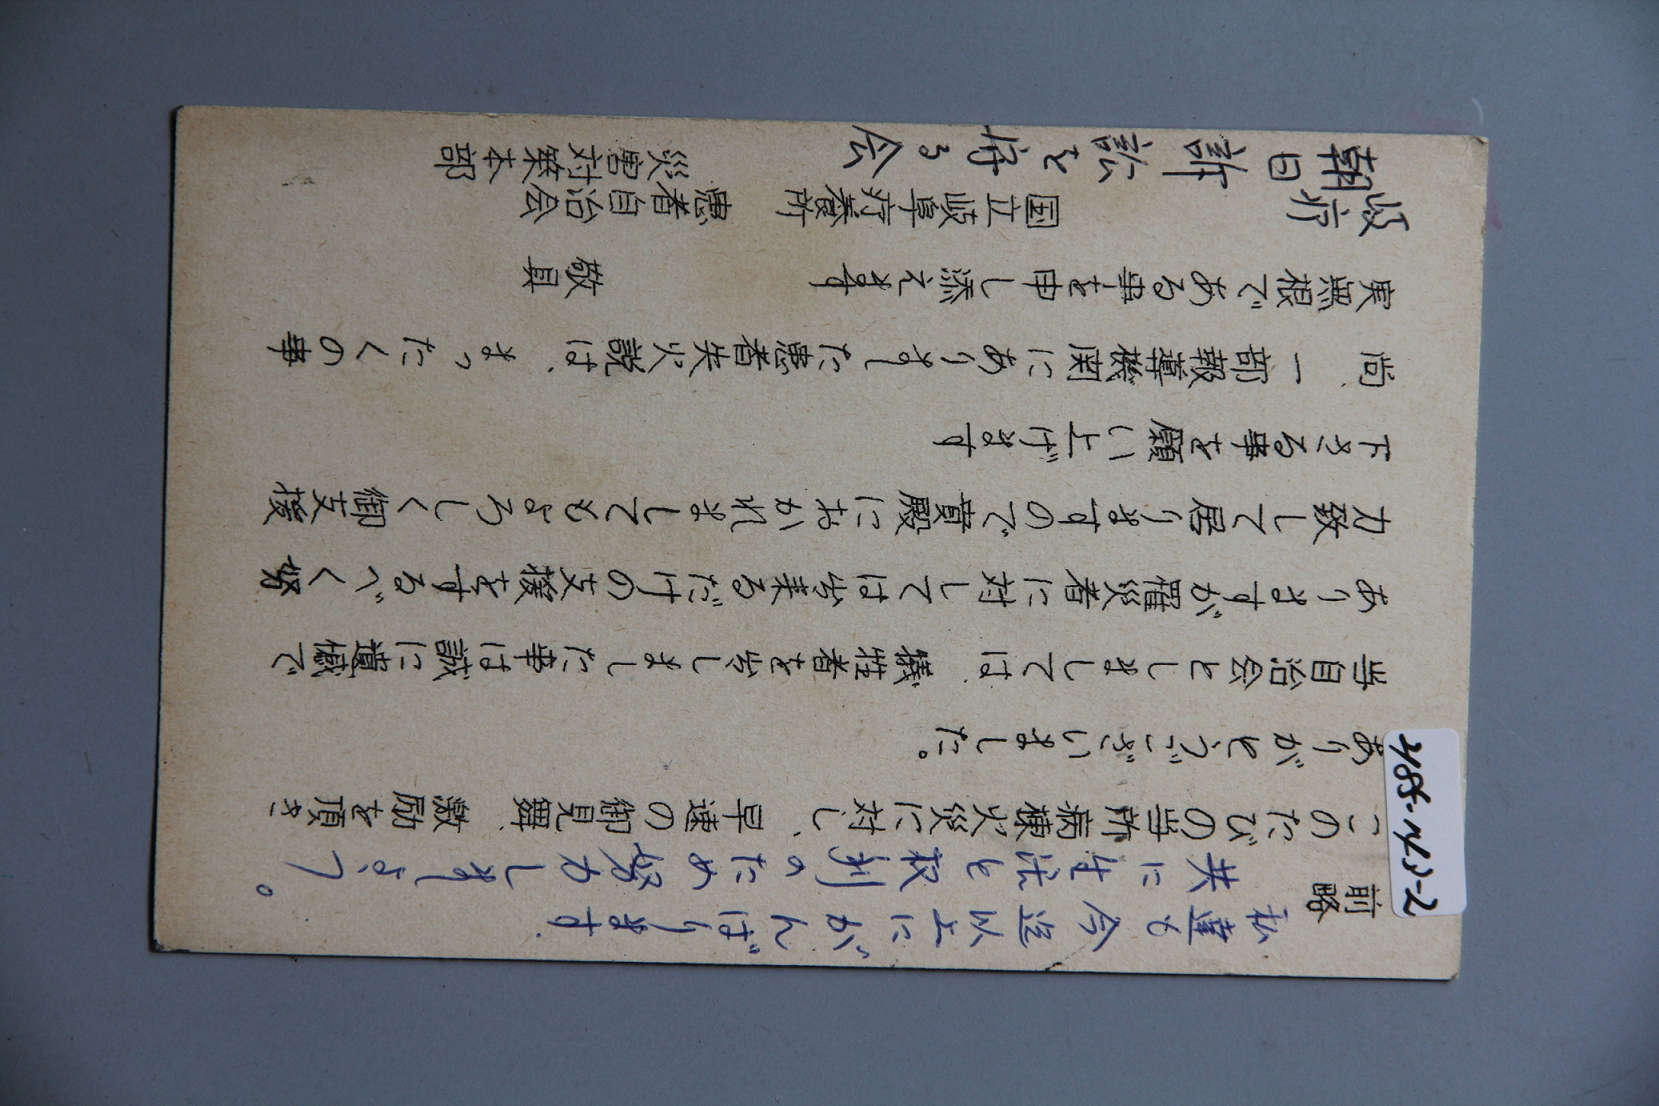 私達も今迄以上にがんばります.
共に生活と权利のため努力しましょう。
前略
このたびの当所病棟火災に対し、早速の御見舞、激励を頂き
ありがとうございました。
当自治会としましては、犠牲者を出しました事は誠に遺憾で
ありますが罹災者に対しては出来るだけの支援をするべく努
力致して居りますので貴殿におかれましてもよろしく御支援
下さる事を願い上げます
尚、一部報導機関にありました患者失火説は、まったくの事
実照根である事を申し添えます 敬具
国立岐阜療養所 患者自治会
災害対策本部
朝日訴訟を守る会